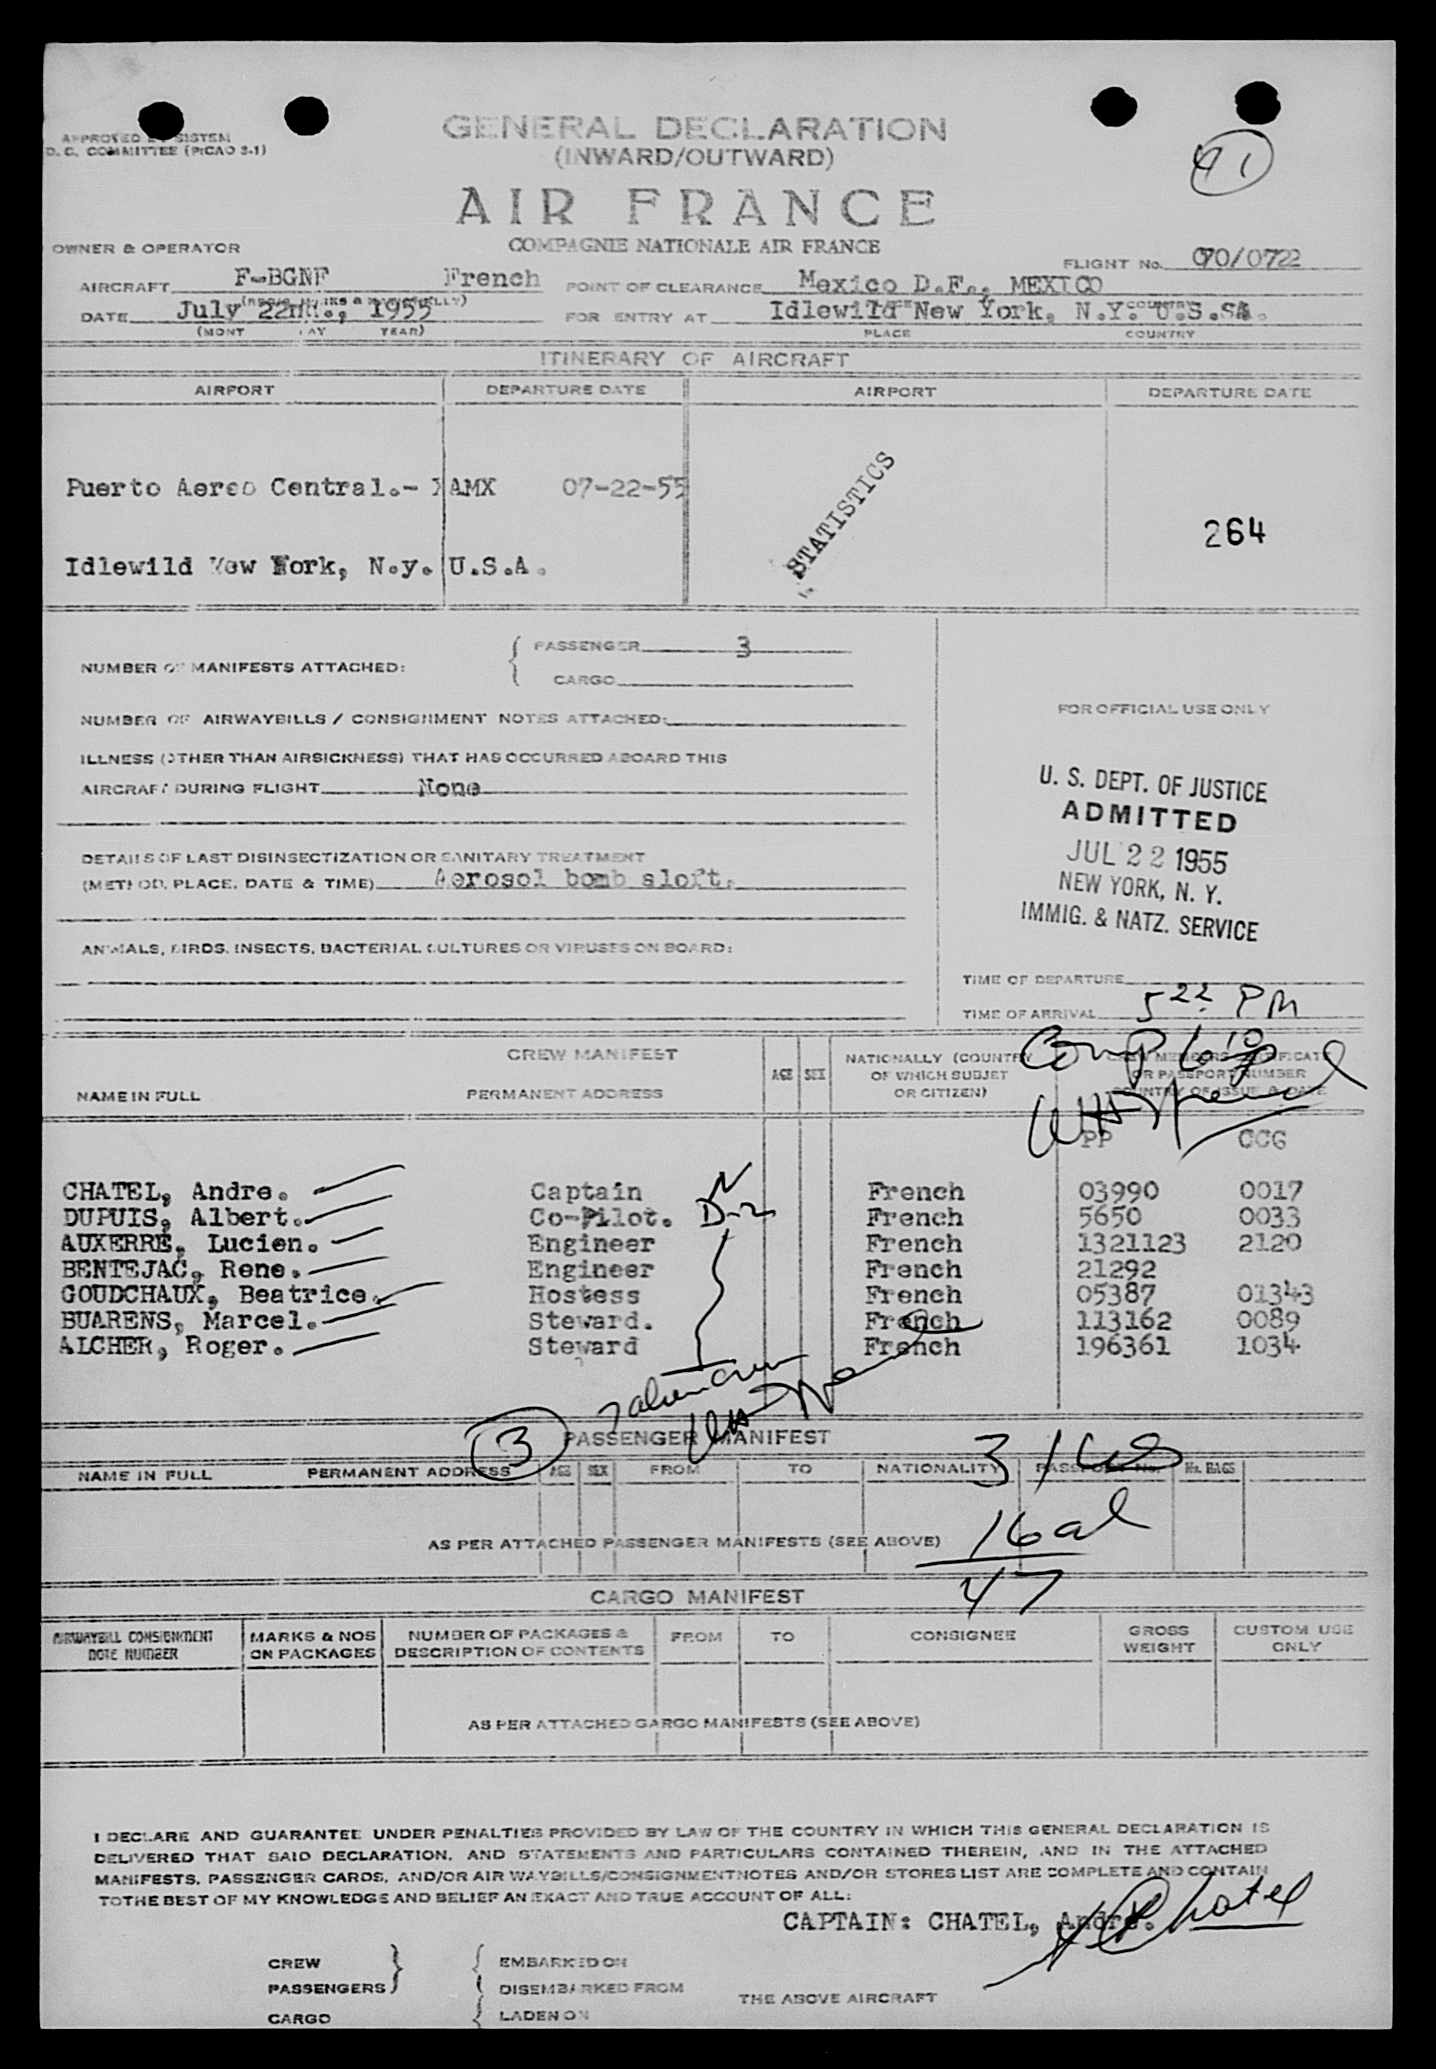 APPROVED SISTEM
D. C. COMMITTEE (PICAO 2-1)
GENERAL DECLARATION
(INWARD/OUTWARD)
41
AIR FRANCE
COMPAGNIE NATIONALE AIR FRANCE
OWNER & OPERATOR
FLIGHT No. 070/0722
AIRCRAFT F-BGNF French POINT OF CLEARANCE Mexico D.F., MEXICO
DATE July 22nd., 1955 FOR ENTRY AT Idlewild New York, N.Y. U.S.A.
YEAR) PLACE COUNTRY
ITINERARY OF AIRCRAFT
AIRPORT DEPARTURE DATE AIRPORT DEPARTURE DATE
Puerto Aereo Central.- AMX 07-22-55
STATISTICS
264
Idlewild New York, N.y. U.S.A.
NUMBER OF MANIFESTS ATTACHED: { PASSENGER 3
CARGO
NUMBER OF AIRWAYBILLS / CONSIGNMENT NOTES ATTACHED:
FOR OFFICIAL USE ONLY
ILLNESS (OTHER THAN AIRSICKNESS) THAT HAS OCCURRED ABOARD THIS
AIRCRAFT DURING FLIGHT None
U. S. DEPT. OF JUSTICE
ADMITTED
JUL 22 1955
NEW YORK, N. Y.
IMMIG. & NATZ. SERVICE
DETAILS OF LAST DISINSECTIZATION OR SANITARY TREATMENT
(METHOD, PLACE, DATE & TIME) Aerosol bomb aloft.
ANIMALS, BIRDS, INSECTS, BACTERIAL CULTURES OR VIRUSES ON BOARD:
TIME OF DEPARTURE
TIME OF ARRIVAL 5 22 PM
Comp 6 10
CREW MANIFEST
NAME IN FULL PERMANENT ADDRESS AGE SEX NATIONALLY (COUNTRY OF WHICH SUBJET OR CITIZEN) CREW MEMBERS CERTIFICATE OR PASSPORT NUMBER COUNTRY OF ISSUE & DATE
PP CCG
CHATEL, Andre. Captain French 03990 0017
DUPUIS, Albert. Co-Pilot. D-2 French 5650 0033
AUXERRE, Lucien. Engineer French 1321123 2120
BENTEJAC, Rene. Engineer French 21292
GOUDCHAUX, Beatrice. Hostess French 05387 01343
BUARENS, Marcel. Steward. French 113162 0089
ALCHER, Roger. Steward French 196361 1034
3
PASSENGER MANIFEST
NAME IN FULL PERMANENT ADDRESS AGE SEX FROM TO NATIONALITY PASSPORT No. Nr. BAGS
31 us
16 al
47
AS PER ATTACHED PASSENGER MANIFESTS (SEE ABOVE)
CARGO MANIFEST
AIRWAYBILL CONSIGNMENT NOTE NUMBER MARKS & NOS ON PACKAGES NUMBER OF PACKAGES & DESCRIPTION OF CONTENTS FROM TO CONSIGNEE GROSS WEIGHT CUSTOM USE ONLY
AS PER ATTACHED CARGO MANIFESTS (SEE ABOVE)
I DECLARE AND GUARANTEE UNDER PENALTIES PROVIDED BY LAW OF THE COUNTRY IN WHICH THIS GENERAL DECLARATION IS
DELIVERED THAT SAID DECLARATION, AND STATEMENTS AND PARTICULARS CONTAINED THEREIN, AND IN THE ATTACHED
MANIFESTS, PASSENGER CARDS, AND/OR AIR WAYBILLS/CONSIGNMENTNOTES AND/OR STORES LIST ARE COMPLETE AND CONTAIN
TOTHE BEST OF MY KNOWLEDGE AND BELIEF AN EXACT AND TRUE ACCOUNT OF ALL:
CAPTAIN: CHATEL, Andre. Chatel
CREW } { EMBARKED ON
PASSENGERS } { DISEMBARKED FROM THE ABOVE AIRCRAFT
CARGO { LADEN ON